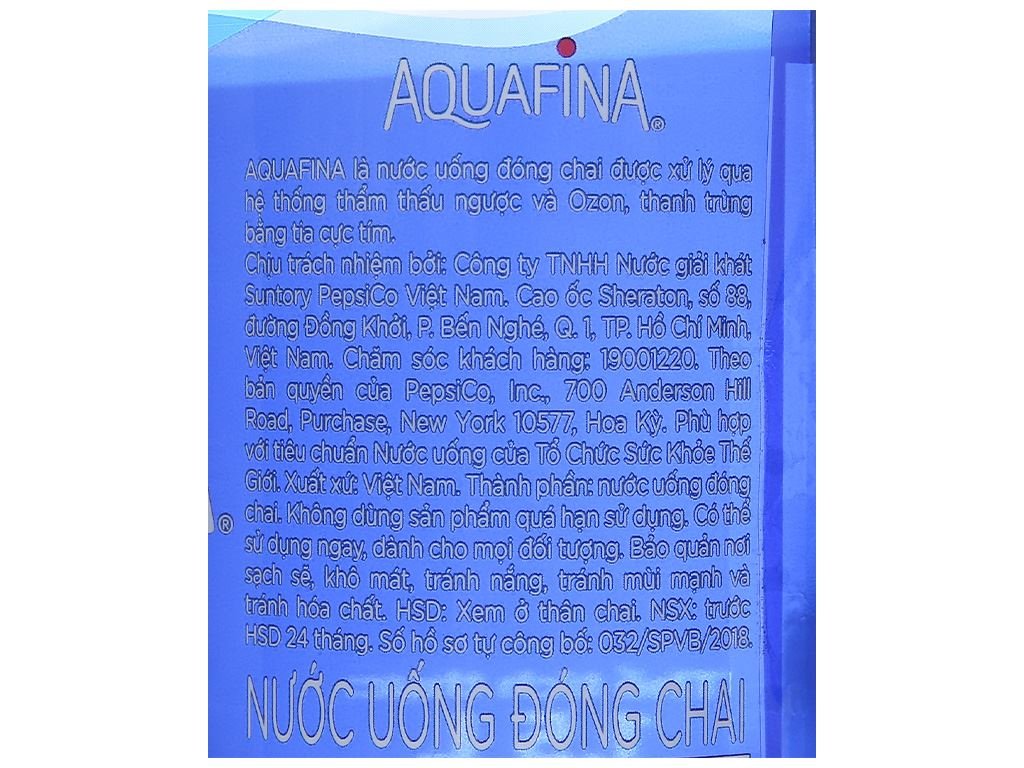 AQUAFINA®
AQUAFINA là nước uống đóng chai được xử lý qua
hệ thống thẩm thấu ngược và Ozon, thanh trùng
bằng tia cực tím.
Chịu trách nhiệm bởi: Công ty TNHH Nước giải khát
Suntory PepsiCo Việt Nam. Cao ốc Sheraton, số 88,
đường Đồng Khởi, P. Bến Nghé, Q. 1, TP. Hồ Chí Minh,
Việt Nam. Chăm sóc khách hàng: 19001220. Theo
bản quyền của PepsiCo, Inc., 700 Anderson Hill
Road, Purchase, New York 10577, Hoa Kỳ. Phù hợp
với tiêu chuẩn Nước uống của Tổ Chức Sức Khỏe Thế
Giới. Xuất xứ: Việt Nam. Thành phần: nước uống đóng
chai. Không dùng sản phẩm quá hạn sử dụng. Có thể
®
sử dụng ngay, dành cho mọi đối tượng. Bảo quản nơi
sạch sẽ, khô mát, tránh nắng, tránh mùi mạnh và
tránh hóa chất. HSD: Xem ở thân chai. NSX: trước
HSD 24 tháng. Số hồ sơ tự công bố: 032/SPVB/2018.
NƯỚC UỐNG ĐÓNG CHAI